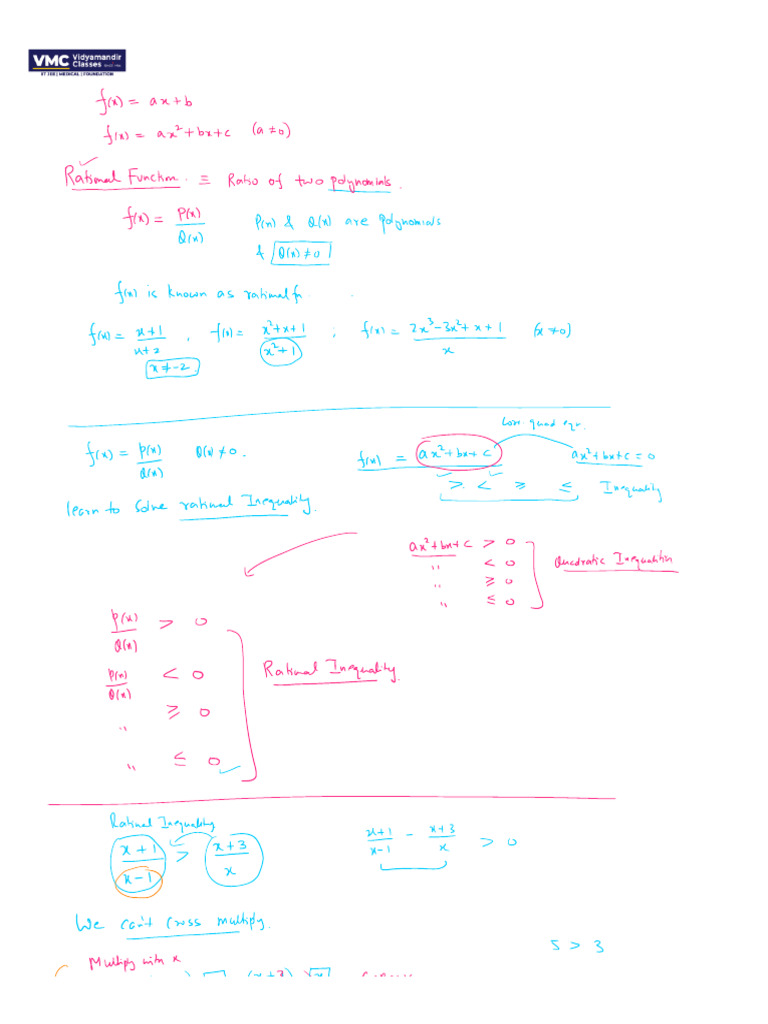 VMC Vidyamandir Classes
IIT JEE | MEDICAL | FOUNDATION
f(x) = ax+b
f(x) = ax² + bx + c (a ≠ 0)
Rational Function ≡ Ratio of two polynomials.
f(x) = P(x)/Q(x) P(x) & Q(x) are polynomials
& Q(x) ≠ 0
f(x) is known as rational fn.
f(x) = x+1/x+2 , f(x) = x²+x+1/x²+1 ; f(x) = 2x³-3x²+x+1/x (x≠0)
x ≠ -2
f(x) = P(x)/Q(x) Q(x) ≠ 0.
quad eqn.
f(x) = ax²+bx+c ax²+bx+c = 0
> < ≥ ≤ Inequality
learn to solve rational Inequality.
ax²+bx+c > 0
" < 0
" ≥ 0
" ≤ 0
Quadratic Inequalities
P(x)/Q(x) > 0
P(x)/Q(x) < 0
" ≥ 0
" ≤ 0
Rational Inequality.
Rational Inequality
x+1/x-1 > x+3/x
x+1/x-1 - x+3/x > 0
We can't cross multiply.
5 > 3
Multiply with x